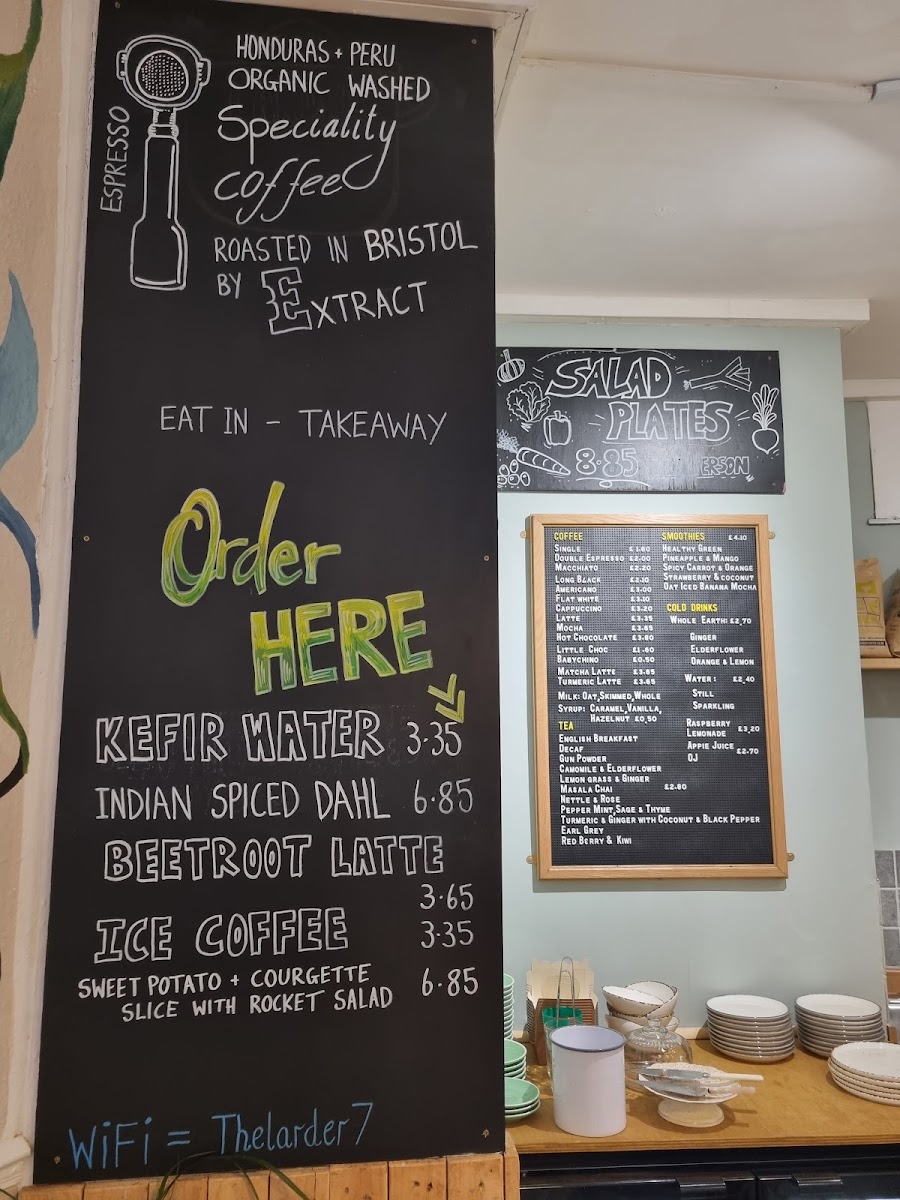 ESPRESSO
HONDURAS + PERU
ORGANIC WASHED
Speciality
coffee
ROASTED IN BRISTOL
BY EXTRACT
EAT IN - TAKEAWAY
Order
HERE
KEFIR WATER 3.35
INDIAN SPICED DAHL 6.85
BEETROOT LATTE
3.65
ICE COFFEE 3.35
SWEET POTATO + COURGETTE 6.85
SLICE WITH ROCKET SALAD
WiFi = Thelarder7
SALAD
PLATES
8.85
COFFEE
SINGLE £1.80
DOUBLE ESPRESSO £2.00
MACCHIATO £2.20
LONG BLACK £2.10
AMERICANO £3.00
FLAT WHITE £3.10
CAPPUCCINO £3.20
LATTE £3.35
MOCHA £3.65
HOT CHOCOLATE £3.60
LITTLE CHOC £1.60
BABYCHINO £0.50
MATCHA LATTE £3.65
TURMERIC LATTE £3.65
MILK: OAT, SKIMMED, WHOLE
SYRUP: CARAMEL, VANILLA,
HAZELNUT £0.50
TEA
ENGLISH BREAKFAST
DECAF
GUN POWDER
CAMOMILE & ELDERFLOWER
LEMON GRASS & GINGER
MASALA CHAI £2.80
NETTLE & ROSE
PEPPER MINT, SAGE & THYME
TURMERIC & GINGER WITH COCONUT & BLACK PEPPER
EARL GREY
RED BERRY & KIWI
SMOOTHIES £4.10
HEALTHY GREEN
PINEAPPLE & MANGO
SPICY CARROT & ORANGE
STRAWBERRY & COCONUT
OAT ICED BANANA MOCHA
COLD DRINKS
WHOLE EARTH: £2.70
GINGER
ELDERFLOWER
ORANGE & LEMON
WATER: £2.40
STILL
SPARKLING
RASPBERRY
LEMONADE £3.20
APPIE JUICE £2.70
OJ